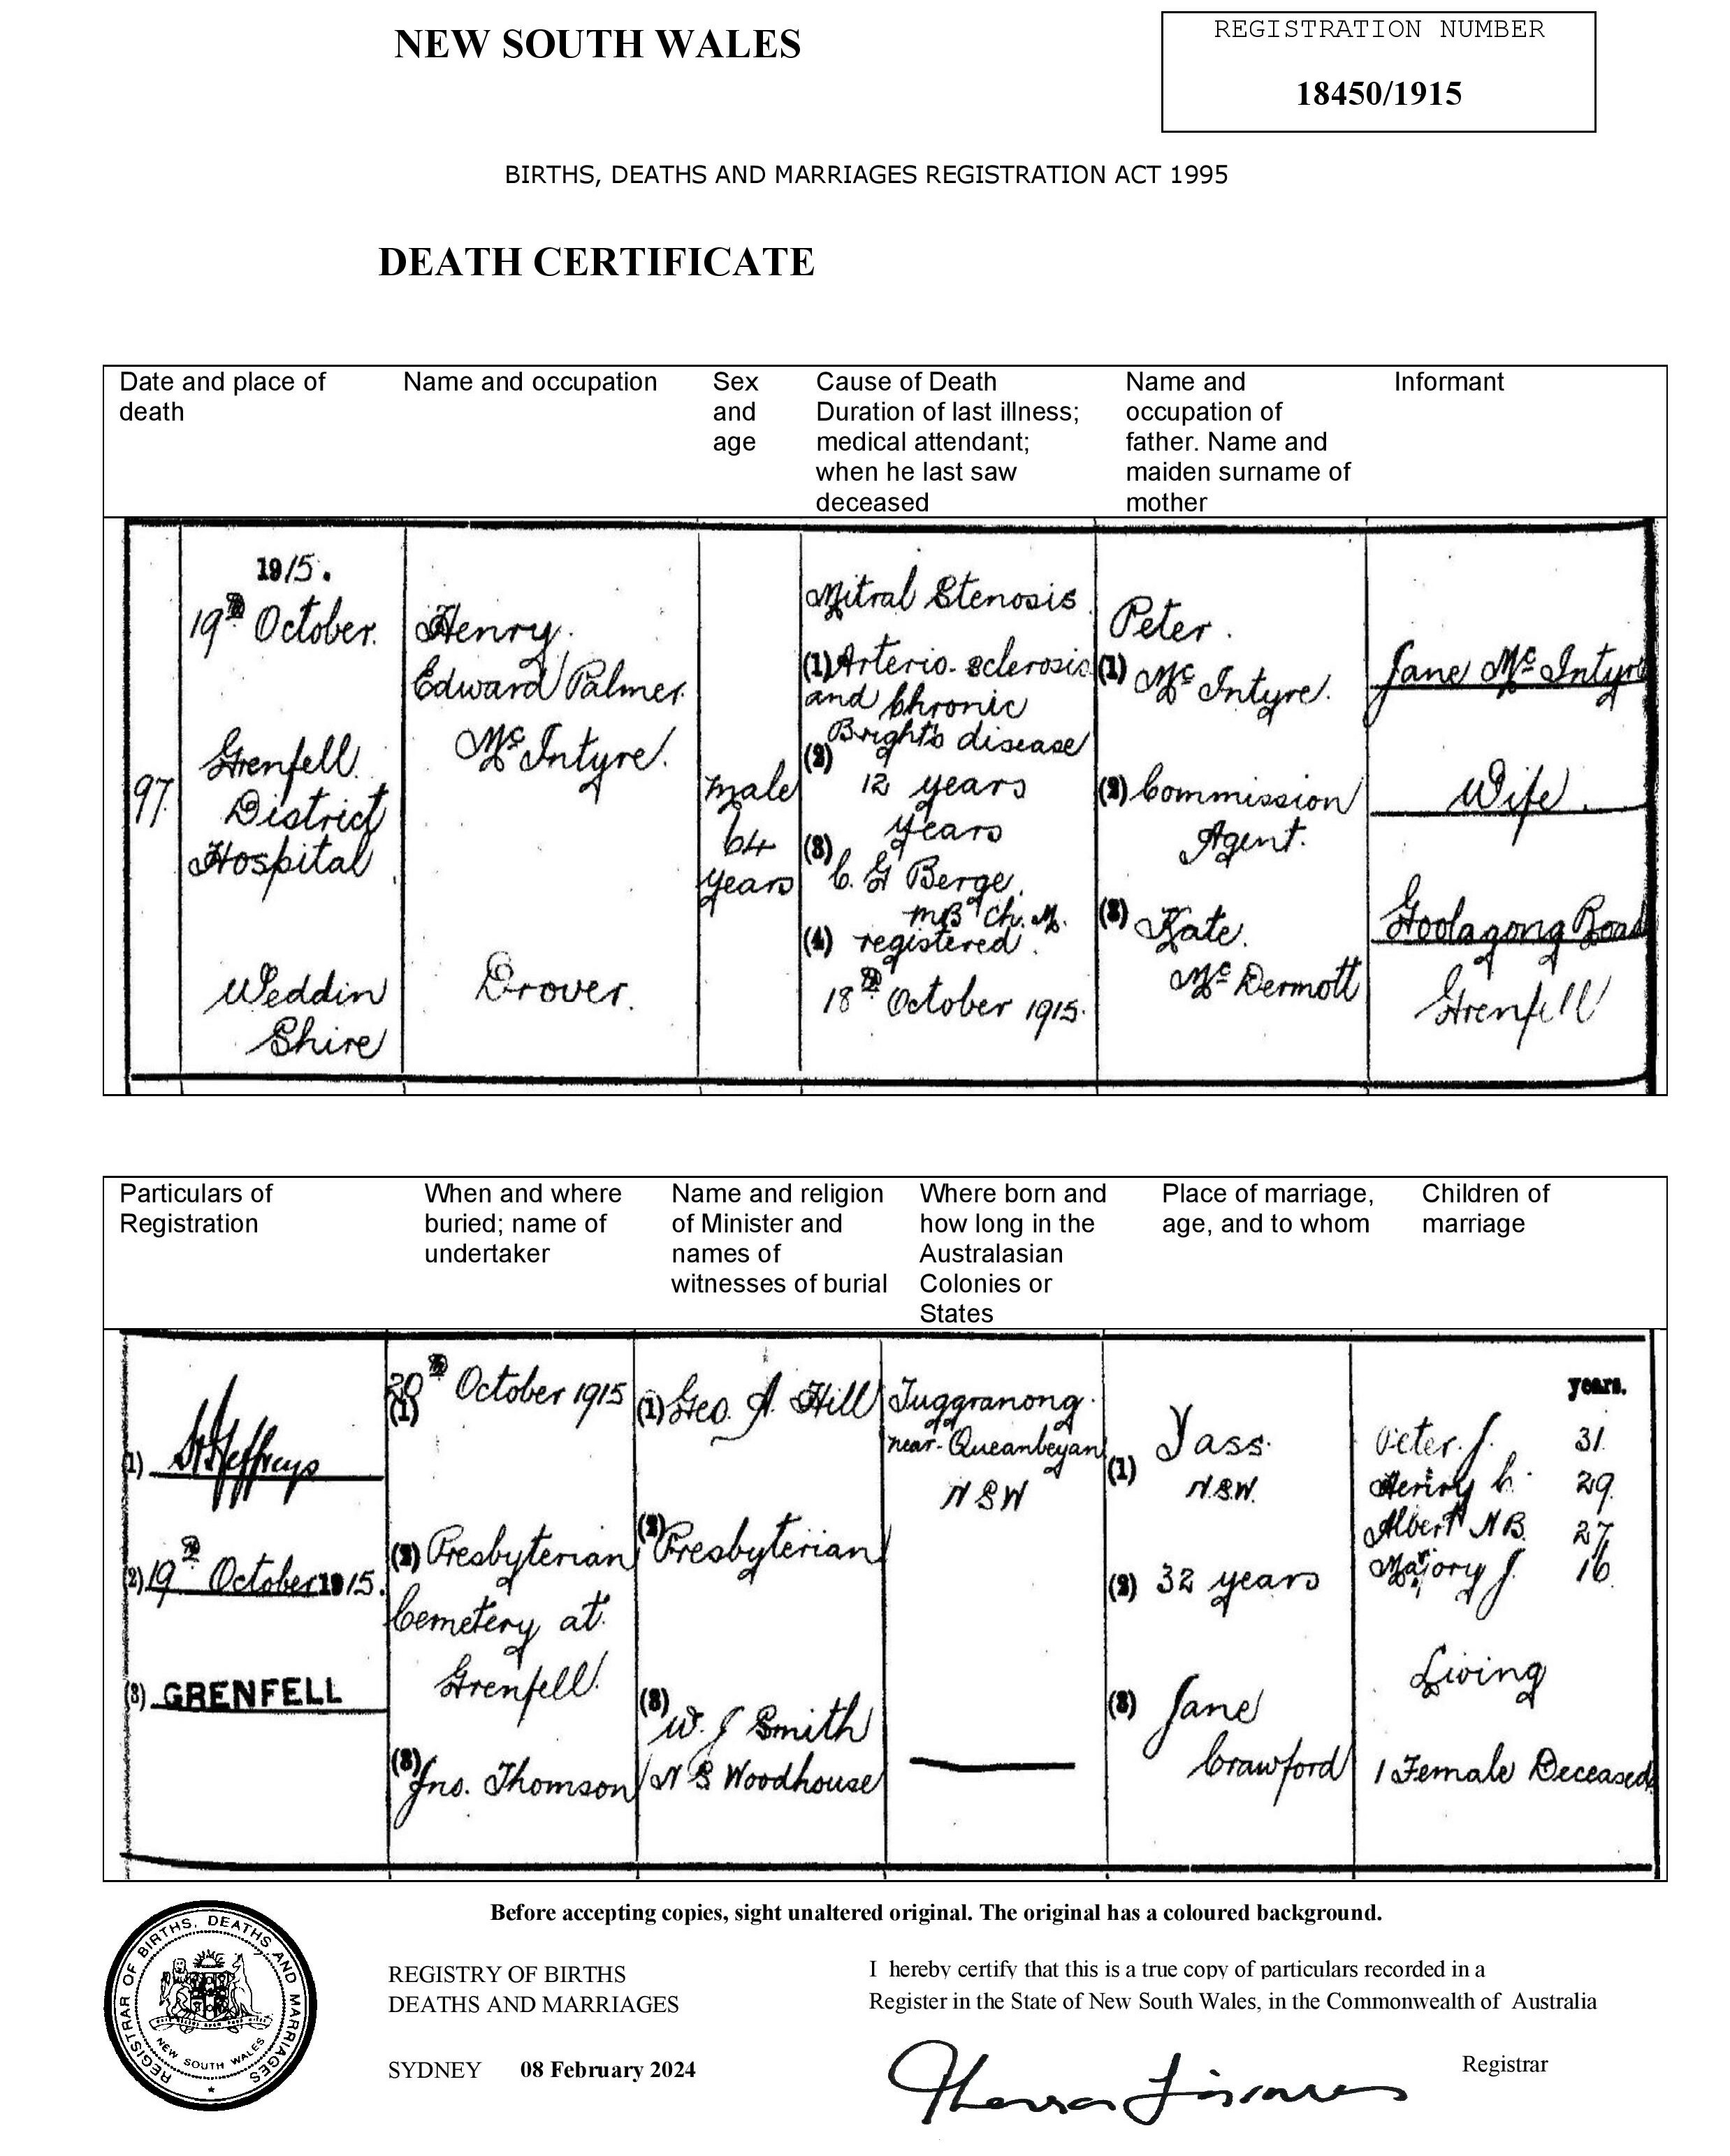 NEW SOUTH WALES
REGISTRATION NUMBER
18450/1915
BIRTHS, DEATHS AND MARRIAGES REGISTRATION ACT 1995
DEATH CERTIFICATE
Date and place of
death
Name and occupation
Sex
and
age
Cause of Death
Duration of last illness;
medical attendant;
when he last saw
deceased
Name and
occupation of
father. Name and
maiden surname of
mother
Informant
97
1915.
19th October.
Grenfell
District
Hospital
Weddin
Shire
Henry
Edward Palmer
McIntyre.
Drover.
male
64
years
Mitral Stenosis
(1) Arterio-sclerosis
and Chronic
Bright's disease
(2)
12 years
years
(3)
C. G Berge.
MB Ch. M.
(4) registered.
18th October 1915.
Peter.
(1) McIntyre.
(2) Commission
Agent.
(3) Kate.
McDermott
Jane McIntyre
Wife.
Goolagong Road
Grenfell
Particulars of
Registration
When and where
buried; name of
undertaker
Name and religion
of Minister and
names of
witnesses of burial
Where born and
how long in the
Australasian
Colonies or
States
Place of marriage,
age, and to whom
Children of
marriage
(1) Jeffreys
(2) 19th October 1915.
(3) GRENFELL
20th October 1915
(1)
(2) Presbyterian
Cemetery at
Grenfell.
(3) Jno. Thomson
(1) Geo. A. Hill
(2) Presbyterian
(3)
W. J Smith
N S Woodhouse
Tuggranong
near Queanbeyan
NSW
(1) Yass
N.S.W.
(2) 32 years
(3) Jane
Crawford
years.
Peter. J. 31
Henry C. 29
Albert N B. 27
Marjory J. 16
Living
1 Female Deceased
Before accepting copies, sight unaltered original. The original has a coloured background.
REGISTRAR OF BIRTHS, DEATHS AND MARRIAGES
NEW SOUTH WALES
REGISTRY OF BIRTHS
DEATHS AND MARRIAGES
SYDNEY 08 February 2024
I hereby certify that this is a true copy of particulars recorded in a
Register in the State of New South Wales, in the Commonwealth of Australia
Registrar